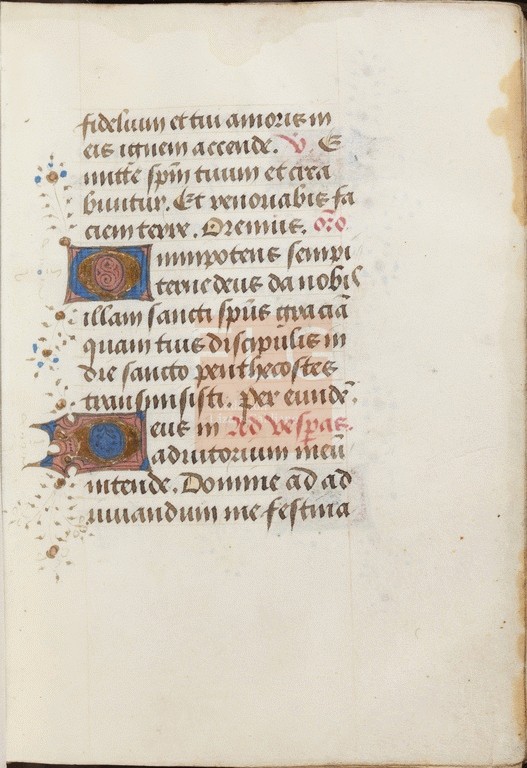 fidelium et tui amoris in
eis ignem accende. V. E
mitte spm̄ tuum et crea
buntur. Et renovabis fa
ciem terre. Oremus. oro
Omnipotens sempi
terne deus da nobis
illam sancti spūs graciā
quam tuis discipulis in
die sancto penthecostes
transmisisti. Per eundē.
Deus in Ad vesp̄as.
adiutorium meū
intende. Domine ad ad
iuvandum me festina